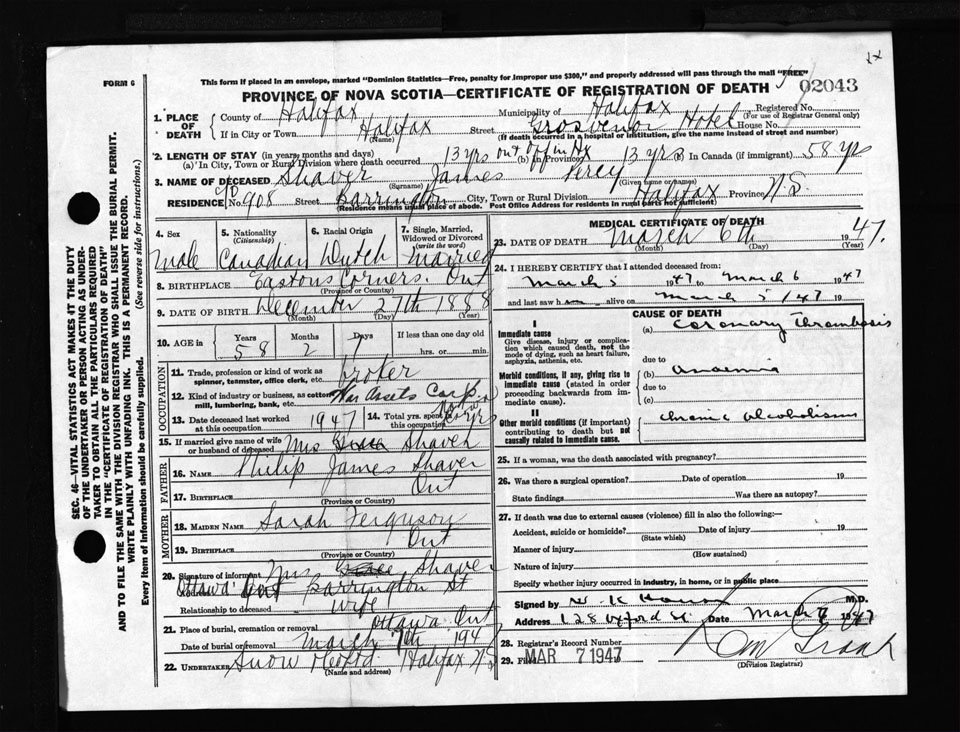 FORM 6
This form if placed in an envelope, marked "Dominion Statistics—Free, penalty for improper use $300," and properly addressed will pass through the mail "FREE"
PROVINCE OF NOVA SCOTIA—CERTIFICATE OF REGISTRATION OF DEATH
02043
1. PLACE OF DEATH
County of Halifax Municipality of Halifax Registered No.
(For use of Registrar General only)
If in City or Town Halifax Street Grosvenor Hotel House No.
(Name) (If death occurred in a hospital or institution, give the name instead of street and number)
2. LENGTH OF STAY (in years, months and days)
(a) In City, Town or Rural Division where death occurred 13 yrs out off in Hx (b) In Province 13 yrs In Canada (if immigrant) 58 yrs
3. NAME OF DECEASED Shaver James Percy
(Surname) (Given name or names)
RESIDENCE No. 908 Street Barrington City, Town or Rural Division Halifax Province N.S.
(Residence means usual place of abode. Post Office Address for residents in rural parts not sufficient)
4. Sex Male
5. Nationality (Citizenship) Canadian
6. Racial Origin Dutch
7. Single, Married, Widowed or Divorced (write the word) Married
8. BIRTHPLACE Eastons Corners. Ont
(Province or Country)
9. DATE OF BIRTH December 27th 1888
(Month) (Day) (Year)
10. AGE in Years 58 Months 2 Days If less than one day old hrs. or min.
OCCUPATION
11. Trade, profession or kind of work as spinner, teamster, office clerk, etc.
12. Kind of industry or business, as cotton mill, lumbering, bank, etc. War Assets Corp.
13. Date deceased last worked at this occupation 1947
14. Total yrs. spent in this occupation yrs
15. If married give name of wife or husband of deceased Mrs Grace Shaver
FATHER
16. NAME Philip James Shaver
17. BIRTHPLACE Ont
(Province or Country)
MOTHER
18. MAIDEN NAME Sarah Ferguson
19. BIRTHPLACE Ont
(Province or Country)
20. Signature of informant Mrs Grace Shaver
Ottawa Ont Barrington St
Relationship to deceased wife
21. Place of burial, cremation or removal Ottawa Ont
Date of burial or removal March 7th 1947
22. UNDERTAKER Snow Halifax N.S.
(Name and address)
MEDICAL CERTIFICATE OF DEATH
23. DATE OF DEATH March 6th 1947.
(Month) (Day) (Year)
24. I HEREBY CERTIFY that I attended deceased from
March 5 1947 to March 6 1947
and last saw h alive on March 5/47 19
CAUSE OF DEATH
I
Immediate cause
Give disease, injury or complication which caused death, not the mode of dying, such as heart failure, asphyxia, asthenia, etc.
(a) Coronary Thrombosis
due to
Morbid conditions, if any, giving rise to immediate cause (stated in order proceeding backwards from immediate cause).
(b) anaemia
due to
(c)
II
Other morbid conditions (if important) contributing to death but not causally related to immediate cause.
chronic alcoholism
25. If a woman, was the death associated with pregnancy?
26. Was there a surgical operation? Date of operation 19
State findings Was there an autopsy?
27. If death was due to external causes (violence) fill in also the following:—
Accident, suicide or homicide? Date of injury 19
(State which)
Manner of injury
(How sustained)
Nature of injury
Specify whether injury occurred in industry, in home, or in public place
Signed by W. K. House M.D.
Address 128 Oxford St Date March 7 1947
28. Registrar's Record Number
29. Filed MAR 7 1947
(Division Registrar)
SEC. 46—VITAL STATISTICS ACT MAKES IT THE DUTY
OF THE UNDERTAKER OR PERSON ACTING AS UNDERTAKER
TO OBTAIN ALL THE PARTICULARS REQUIRED
IN THE "CERTIFICATE OF REGISTRATION OF DEATH"
AND TO FILE THE SAME WITH THE DIVISION REGISTRAR WHO SHALL ISSUE THE BURIAL PERMIT.
WRITE PLAINLY WITH UNFADING INK. THIS IS A PERMANENT RECORD.
Every item of information should be carefully supplied. (See reverse side for instructions.)